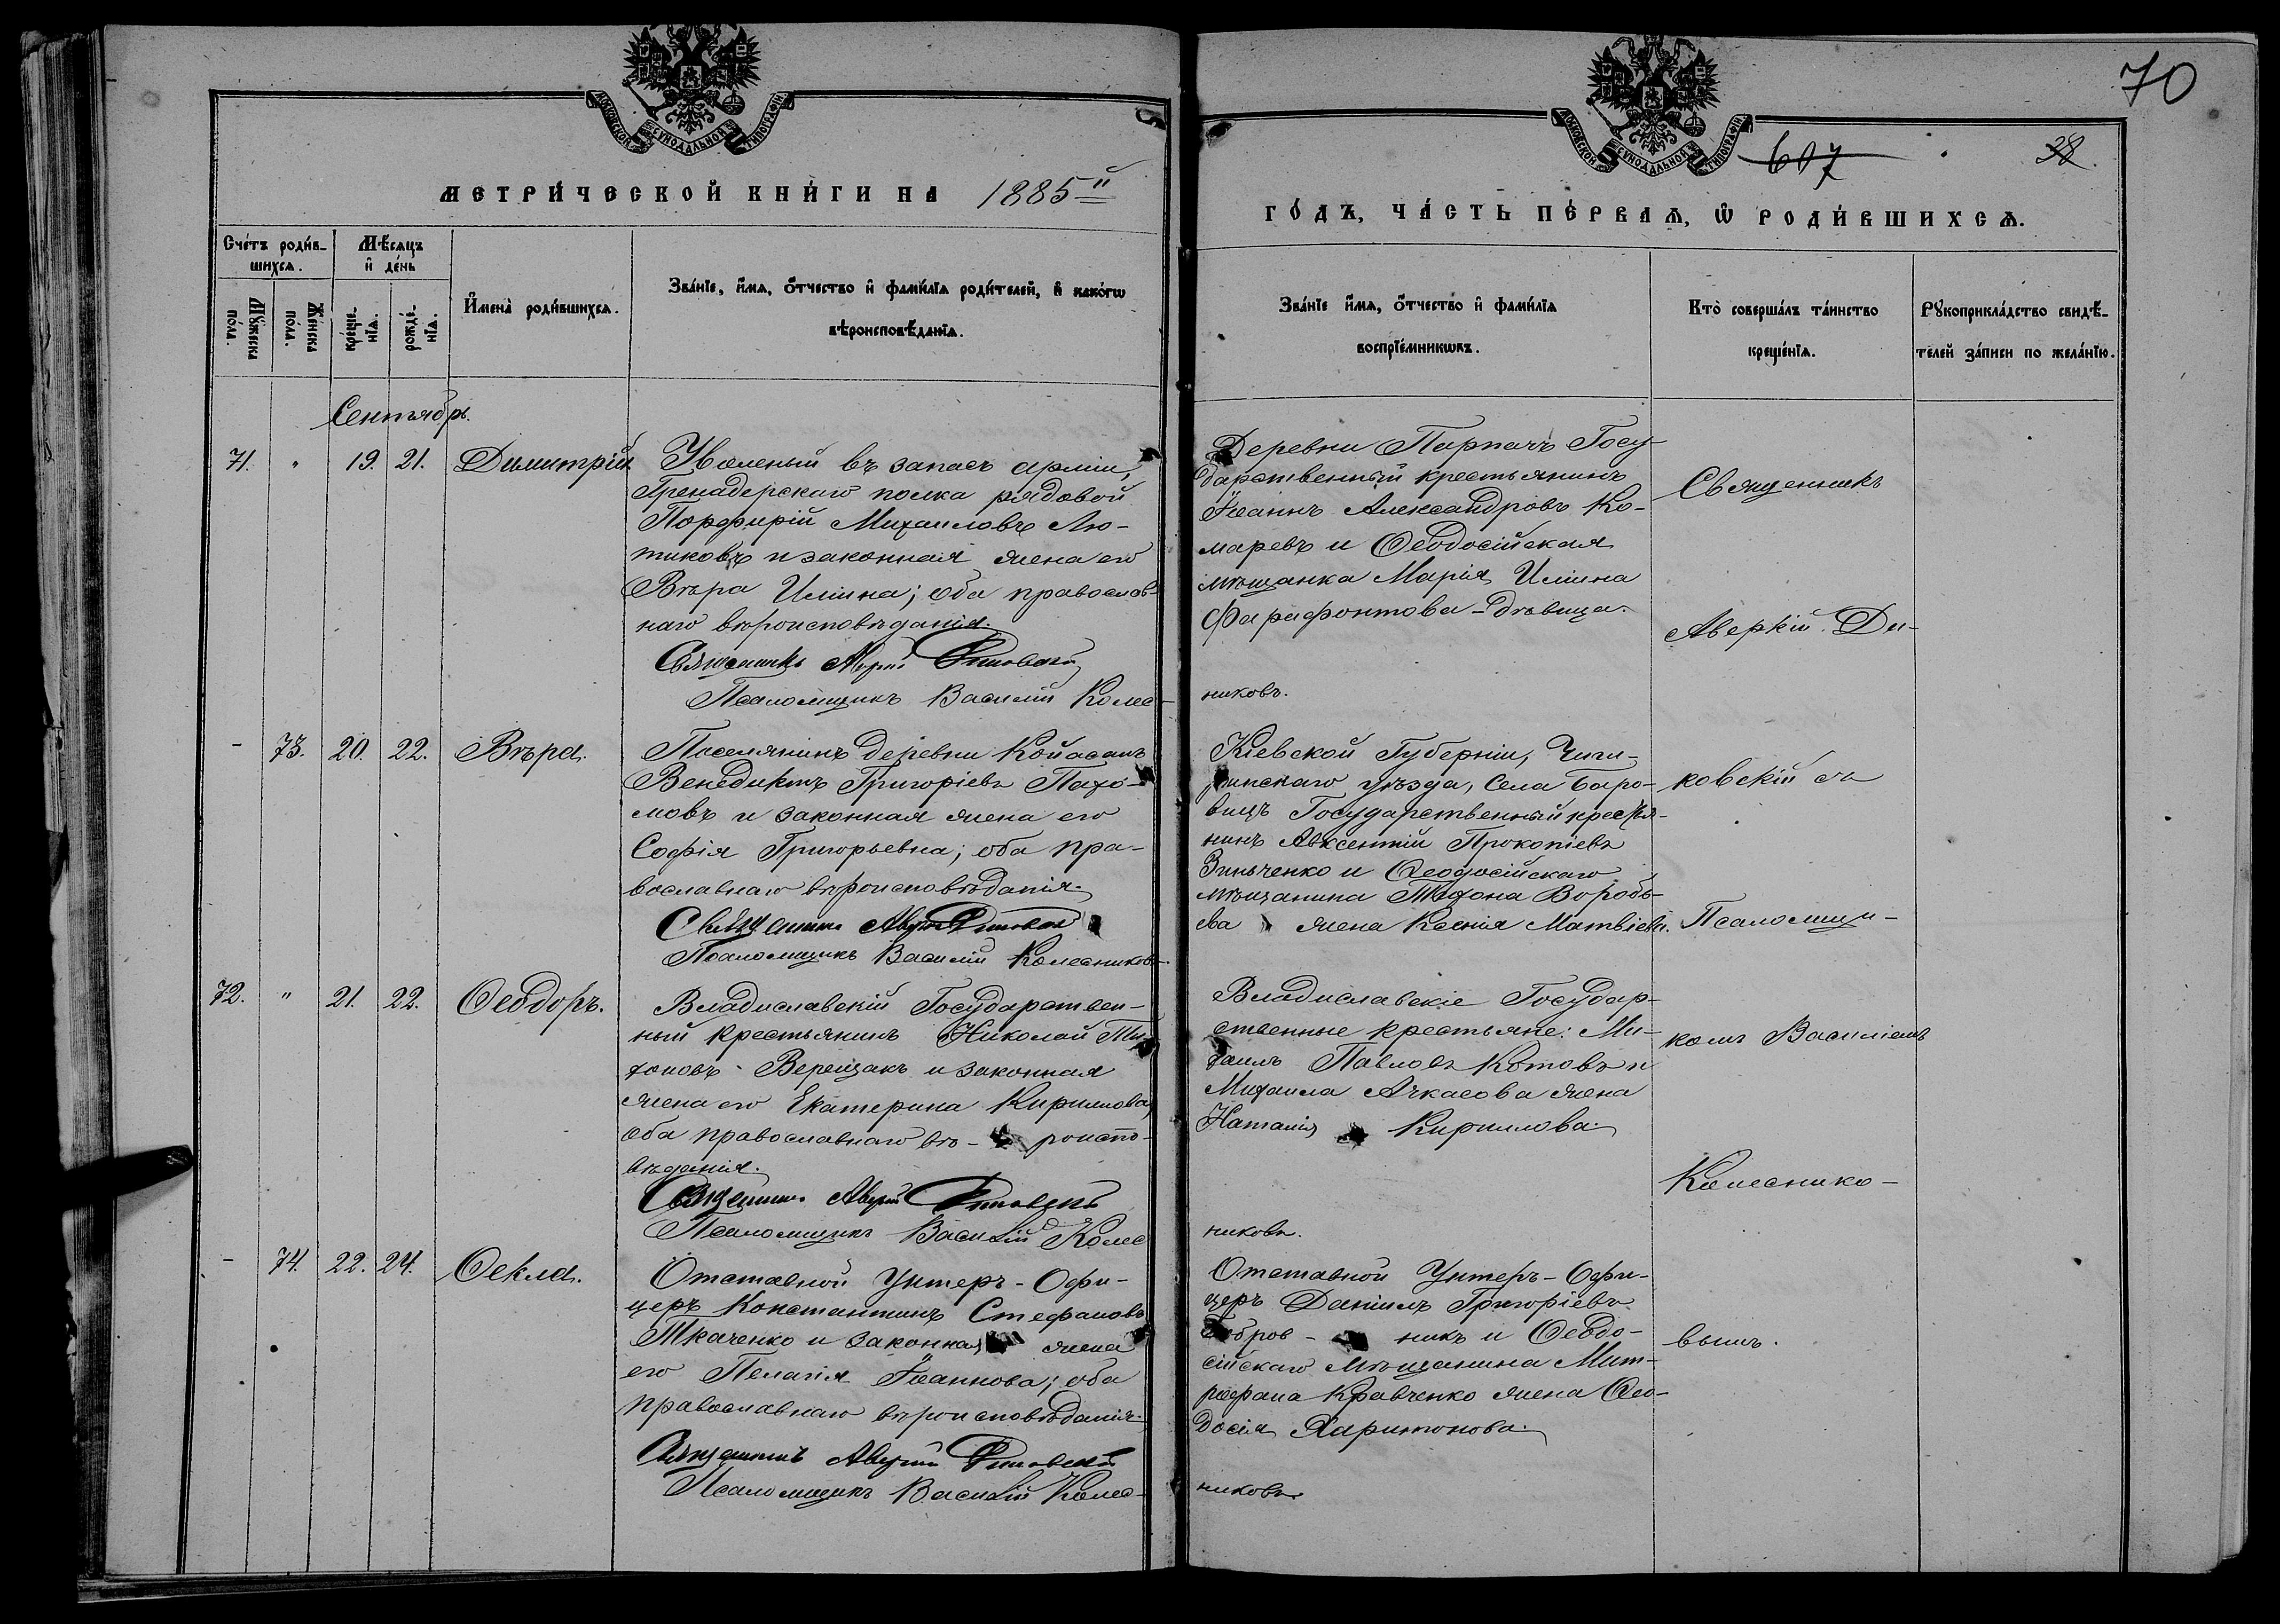 70
МОСКОВСКОЙ СѴНОДАЛЬНОЙ ТИПОГРАФІИ
МОСКОВСКОЙ СѴНОДАЛЬНОЙ ТИПОГРАФІИ
607
38.
МЕТРИ́ЧЕСКОЙ КНИ́ГИ НА 1885й
ГО́ДЪ, ЧА́СТЬ ПЕ́РВАѦ, Ѡ РОДИ́ВШИХСѦ.
Сче́тъ роди́в-
шихся.
Мѣ́сяцъ
и де́нь
Мꙋжеска по́ла.
Же́нска по́ла.
креще́-
нїя.
рожде́-
нїя.
Имена̀ роди́вшихся.
Зва́нїе, и́мя, о́тчество и фами́лїя роди́телей, и како́гѡ
вѣроисповѣ́данїя.
Зва́нїе и́мя, о́тчество и фами́лїя
воспрїе́мникѡвъ.
Кто̀ соверша́лъ та́инство
креще́нїя.
Рꙋкоприкла́дство свидѣ́-
телей за́писи по жела́нїю.
Сентябрь.
71. " 19. 21. Димитрій
Уволеный въ запасъ арміи,
Гренадерскаго полка рядовой
Порфирій Михаиловъ Лю-
тиковъ и законная жена его
Вѣра Иліина; оба православ-
наго вѣроисповѣданія.
Священникъ Аверкій Дитовскій
Псаломщикъ Василій Колес-
Деревни Парпачъ Госу-
дарственный крестьянинъ
Іоаннъ Александровъ Ко-
маревъ и Ѳеодосійская
мѣщанка Марія Иліина
Фарафонтова - дѣвица.
никовъ.
Священникъ
Аверкій Ди-
- 73. 20. 22. Вѣра.
Поселянинъ деревни Койасанъ
Венедиктъ Григоріевъ Пахо-
мовъ и законная жена его
Софія Григорьевна; оба пра-
вославнаго вѣроисповѣданія.
Священникъ Аверкій
Псаломщикъ Василій Колесниковъ.
Кіевской Губерніи, Чиги-
ринскаго уѣзда, Села Боро-
вицъ Государственный крестья-
нинъ Авксентій Прокопіевъ
Зинченко и Ѳеодосійскаго
мѣщанина Тихона Воробь-
ева жена Ксенія Матвіева.
ковскій съ
Псаломщи-
72. " 21. 22. Ѳеодоръ.
Владиславскій Государствен-
ный крестьянинъ Николай Ти-
хоновъ Верещакъ и законная
жена его Екатерина Кириллова,
оба православнаго вѣ- роиспо-
вѣданія.
Священникъ Аверкій
Псаломщикъ Василій Колес
Владиславскіе Государ-
ственные крестьяне: Ми-
хаилъ Павловъ Котовъ и
Михаила Ачкасова жена
Наталія Кириллова.
никовъ.
комъ Василіемъ
Колеснико-
- 74. 22. 24. Ѳекла.
Отставной Унтеръ-Офи-
церъ Константинъ Стефановъ
Ткаченко и законная жена
его Пелагія Іоаннова; оба
православнаго вѣроисповѣданія.
Священникъ Аверкій
Псаломщикъ Василій Колес-
Отставной Унтеръ-Офи-
церъ Даніилъ Григоріевъ
Бобров- никъ и Ѳеодо-
сійскаго мѣщанина Мит-
рофана Кравченко жена Ѳео-
досія Харитонова.
никовъ
вымъ.